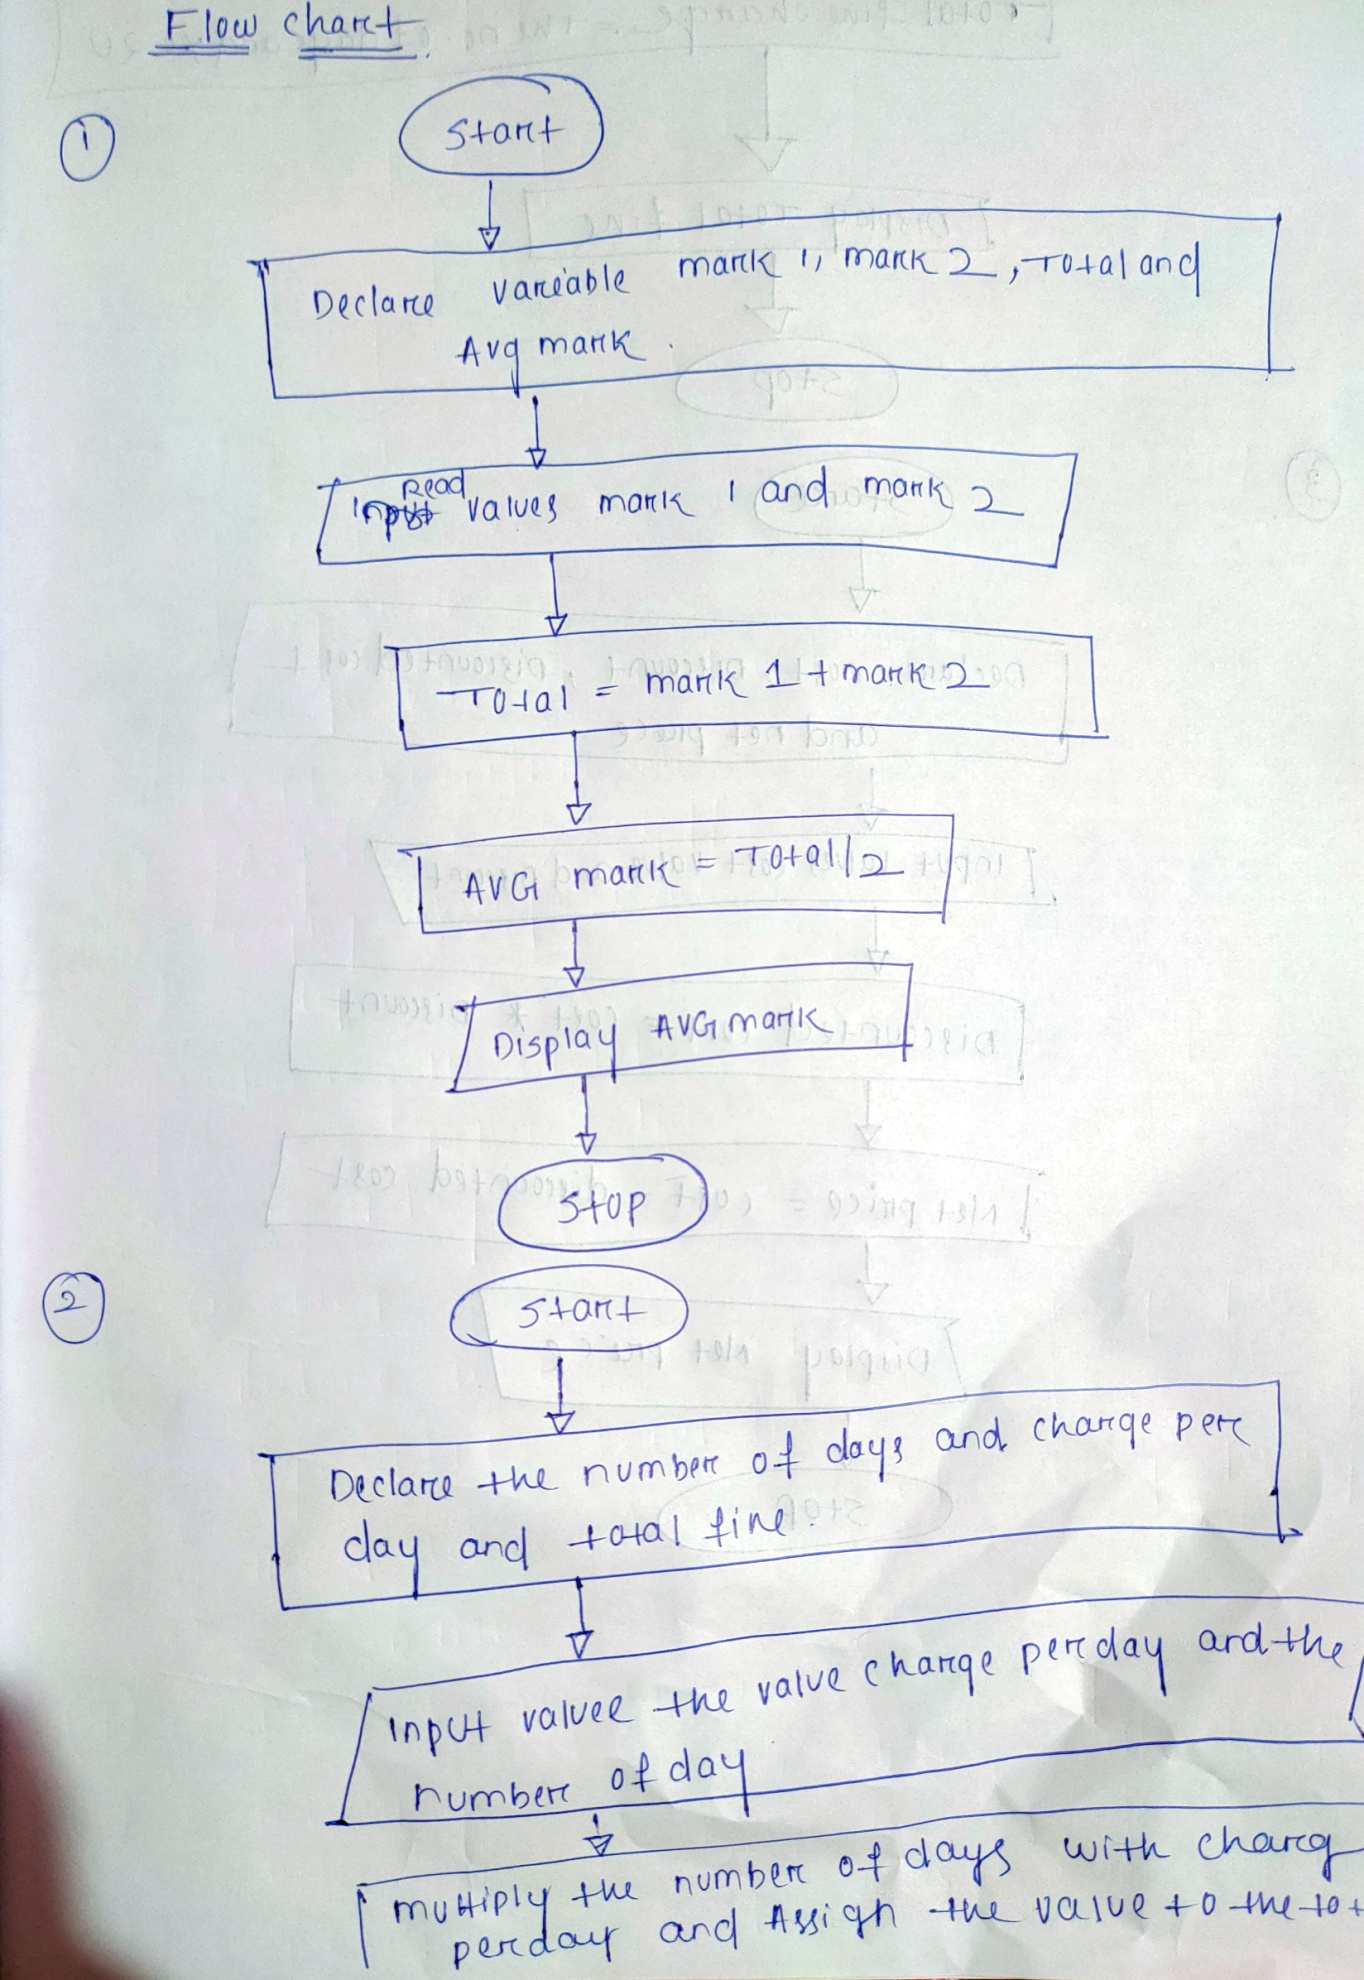 Flow chart
1
Start
Declare variable mark 1, mark 2, Total and
Avg mark.
Read
Input values mark 1 and mark 2
Total = mark 1 + mark 2
AVG mark = Total/2
Display AVG mark
Stop
2
Start
Declare the number of days and charge per
day and total fine.
Input valuee the value charge per day and the
number of day
multiply the number of days with charg
perday and Assign the value to the tot